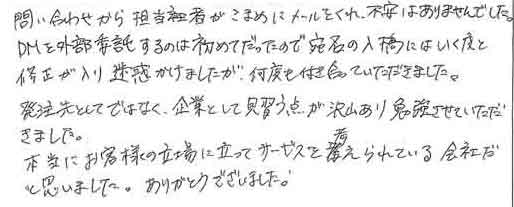 問い合わせから担当者がこまめにメールをくれ、不安はありませんでした。
DMを外部委託するのは初めてだったので宛名の入稿にはいく度と
修正が入り迷惑かけましたが、何度も付き合っていただきました。
発注先としてではなく、企業として見習う点が沢山あり勉強させていただ
きました。
本当にお客様の立場に立ってサービスを考えられている会社だ
と思いました。ありがとうございました。